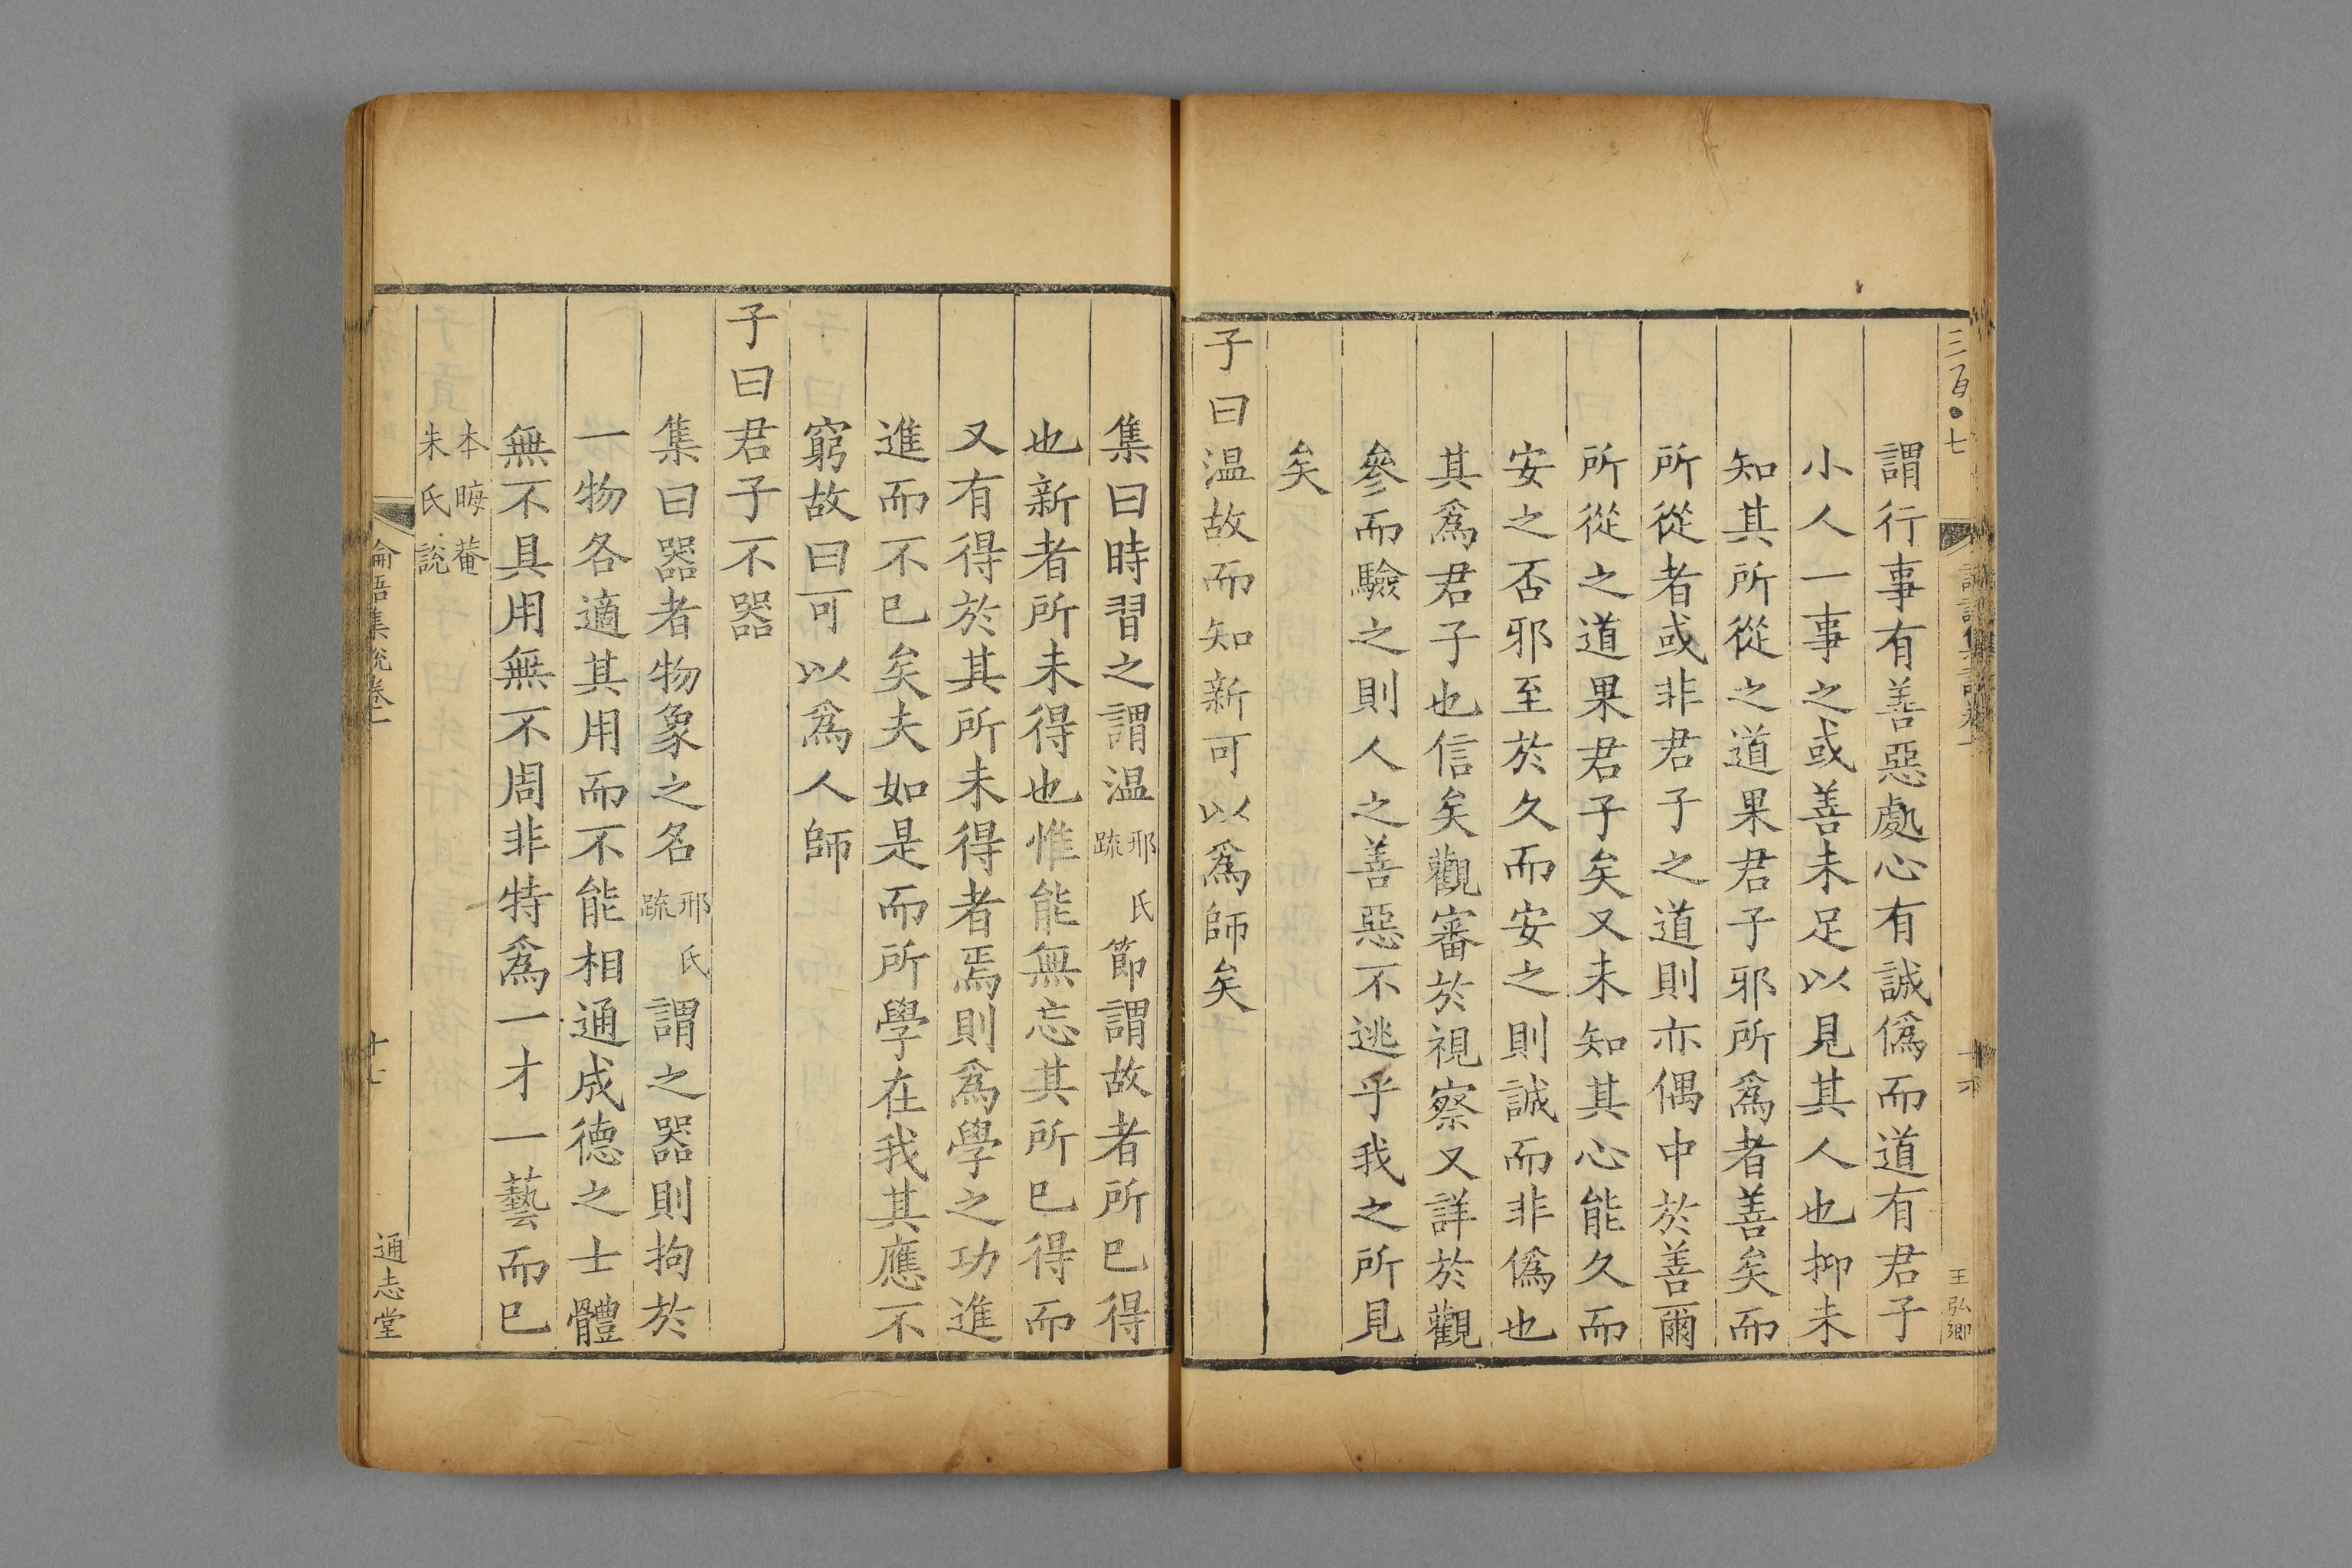 三百〇七
論語集說卷一
王弘卿
謂行事有善惡處心有誠僞而道有君子
小人一事之或善未足以見其人也抑未
知其所從之道果君子邪所爲者善矣而
所從者或非君子之道則亦偶中於善爾
所從之道果君子矣又未知其心能久而
安之否邪至於久而安之則誠而非僞也
其爲君子也信矣觀審於視察又詳於觀
參而驗之則人之善惡不逃乎我之所見
矣
子曰温故而知新可以爲師矣
集曰時習之謂温邢氏疏節謂故者所巳得
也新者所未得也惟能無忘其所巳得而
又有得於其所未得者焉則爲學之功進
進而不巳矣夫如是而所學在我其應不
窮故曰可以爲人師
子曰君子不器
集曰器者物象之名邢氏疏謂之器則拘於
一物各適其用而不能相通成德之士體
無不具用無不周非特爲一才一藝而巳
本晦菴
朱氏說
論語集說卷一
十七
通志堂